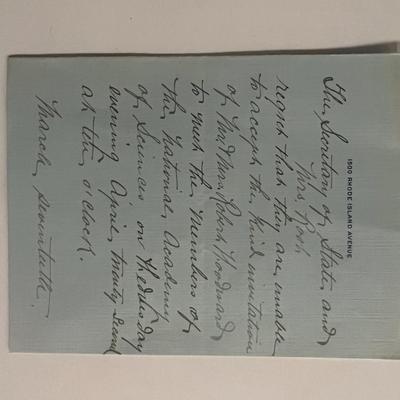 1500 RHODE ISLAND AVENUE
The Secretary of State and
Mrs. Root
regret that they are unable
to accept the kind invitation
of Mr. & Mrs. Robert Woodward
to meet the Members of
the National Academy
of Sciences on Wednesday
evening April twenty second
at ten o'clock.
March seventeenth.